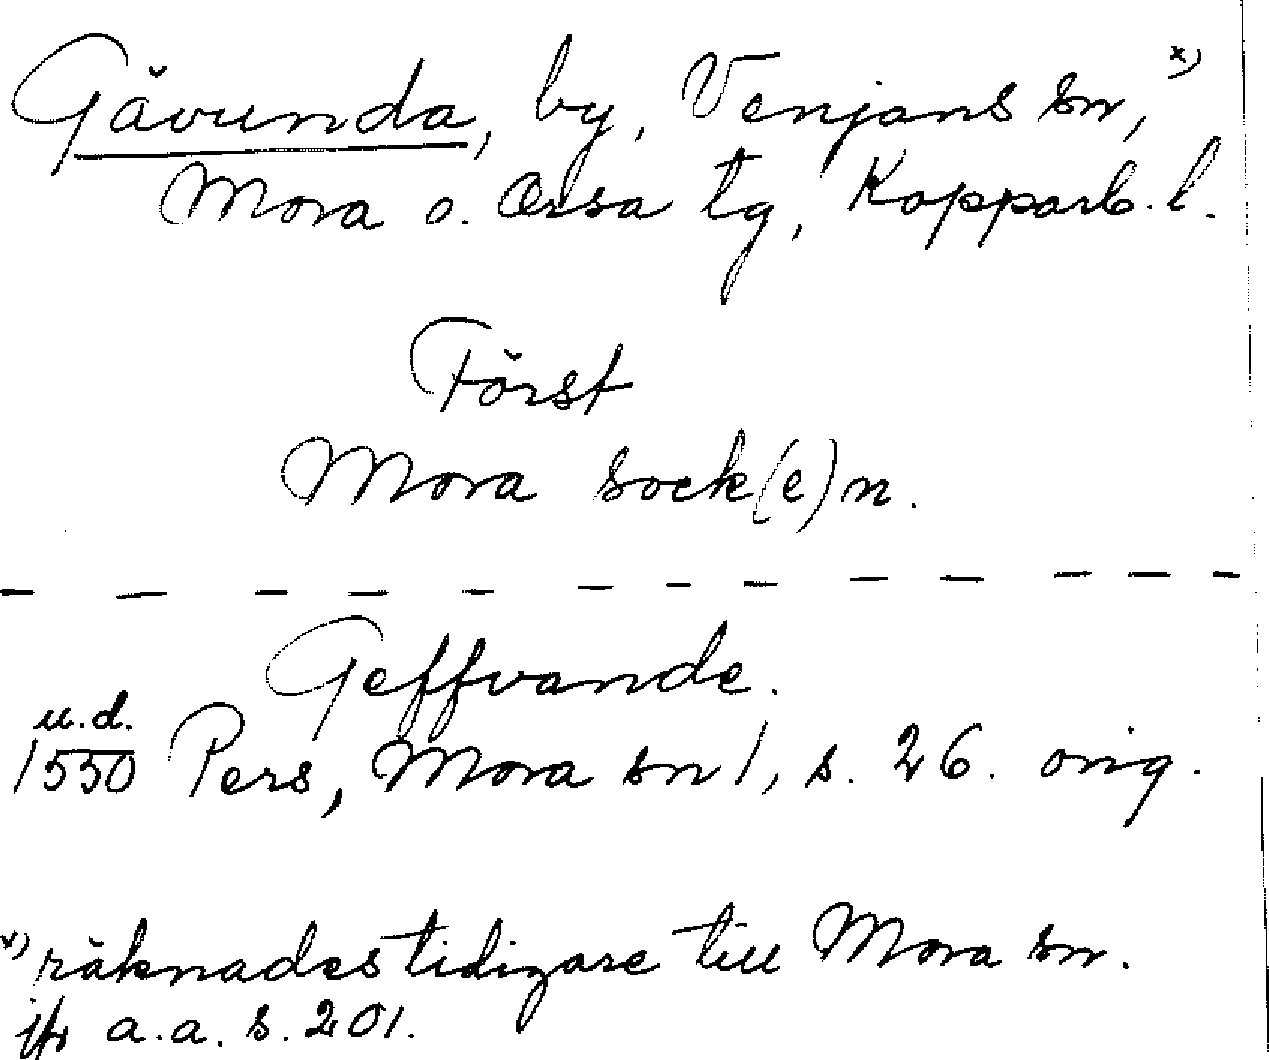 Gävunda, by, Venjans sn, x)
Mora o. Orsa tg, Kopparb. l.
Först
Mora sock(e)n.
Geffvande.
u.d.
1550 Pers, Mora sn 1, s. 26. orig.
x) räknades tidigare till Mora sn.
jfr a.a. s. 201.